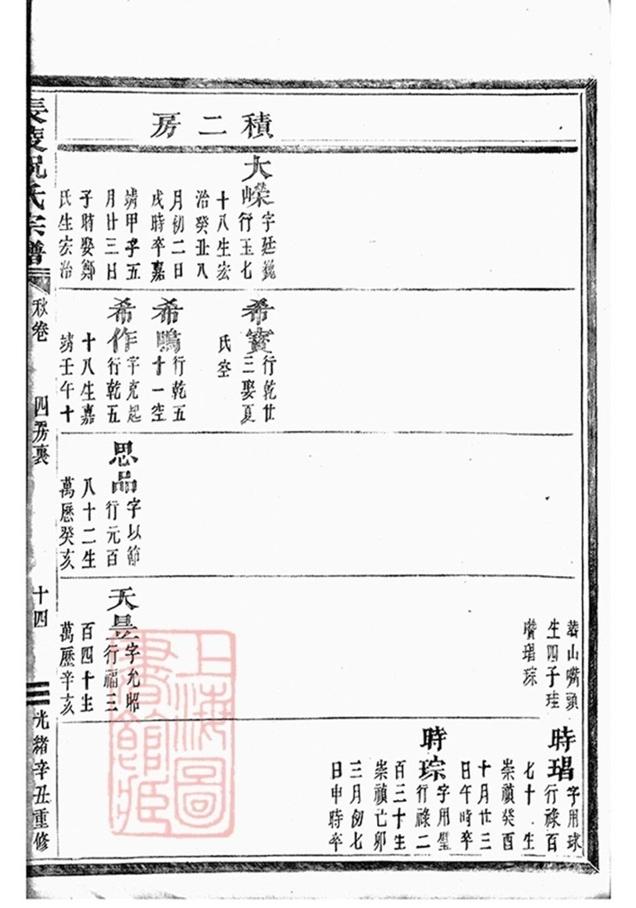 積二房
大嶸
字廷巍
行玉七
十八生宏
治癸丑八
月初二日
戌時卒嘉
靖甲子五
月廿三日
子時娶鄭
氏生宏治
希寳
行乾廿
三娶夏
氏空
希鳴
行乾五
十一空
希作
字克起
行乾五
十八生嘉
靖壬午十
思品
字以節
行元百
八十二生
萬歷癸亥
山嘴頭
生四子珪
琩琮
天昱
字允昭
行福三
百四十生
萬歷辛亥
時琩
字用球
行祿百
七十生
崇禎癸酉
十月廿三
日午時卒
時琮
字用璧
行祿二
百三十生
崇禎亡卯
三月初七
日申時卒
長陵祝氏宗譜
秋卷
四房裏
十四
光緒辛丑重修
上海圖書館藏